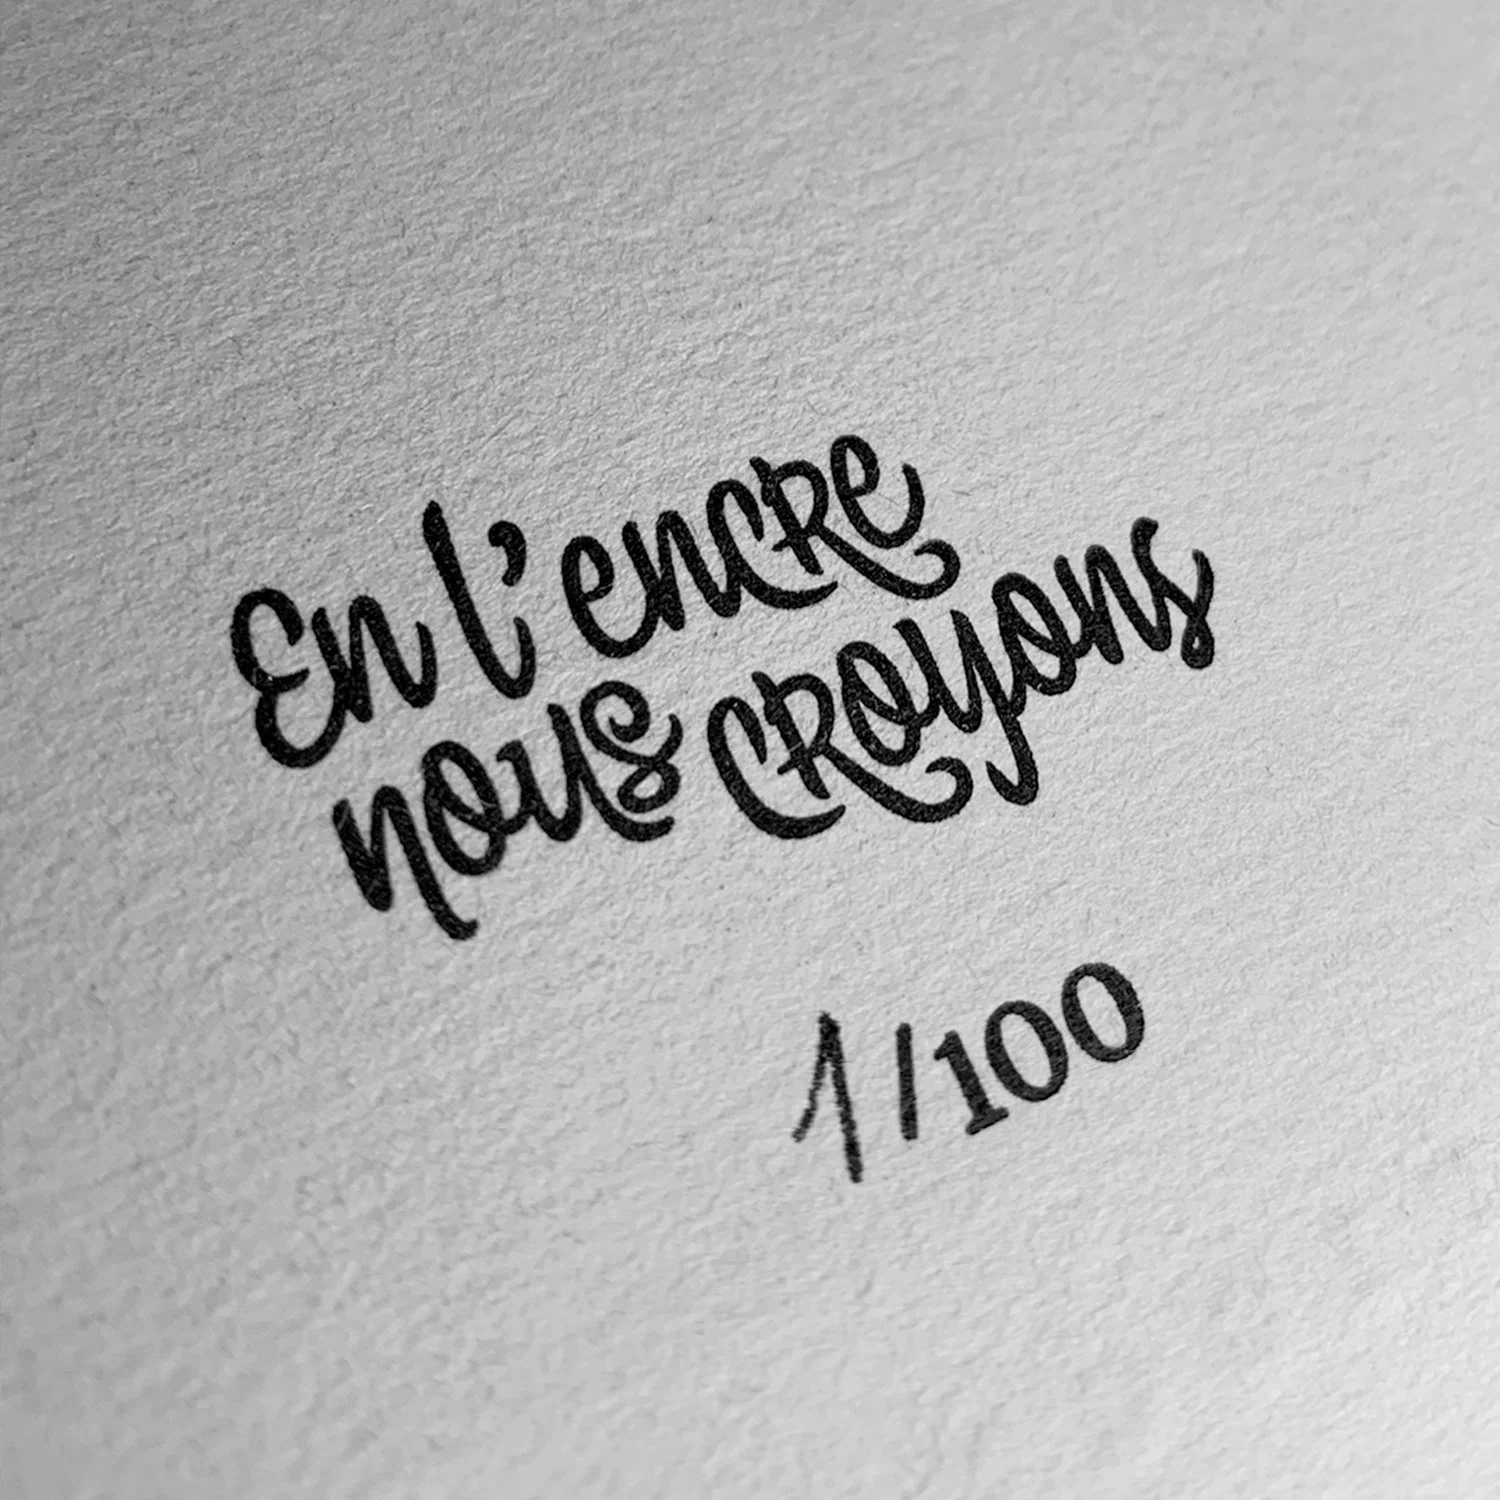 En l'encre
nous croyons
1/100